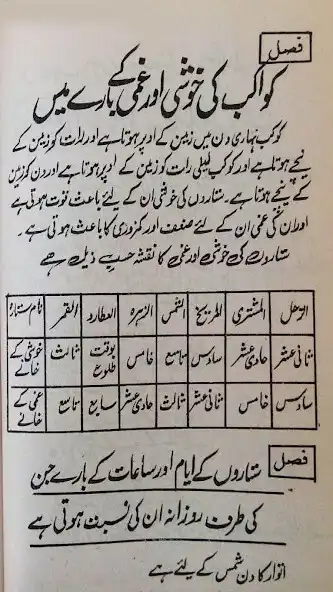 فصل
کواکب کی خوشی اور غمی کے بارے میں
کوکب نہاری دن میں زمین کے اوپر ہوتا ہے اور رات کو زمین کے
نیچے ہوتا ہے اور کوکب لیلی رات کو زمین کے اوپر ہوتا ہے اور دن کو زمین
کے نیچے ہوتا ہے۔ ستاروں کی خوشی ان کے لیئے باعث قوت ہوتی ہے
اور ان کی غمی ان کے لئے ضعف اور کمزوری کا باعث ہوتی ہے۔
ستاروں کی خوشی اور غمی کا نقشہ حسب ذیل ہے
نام ستارہ القمر العطارد الزہرہ الشمس المریخ المشتری الزحل
خوشی کے خانے ثالث بوقت طلوع خامس تاسع سادس حادی عشر ثانی عشر
غمی کے خانے تاسع سابع حادی عشر ثالث ثانی عشر خامس سادس
فصل
ستاروں کے ایام اور ساعات کے بارے جن
کی طرف روزانہ ان کی نسبت ہوتی ہے
اتوار کا دن شمس کے لیئے ہے